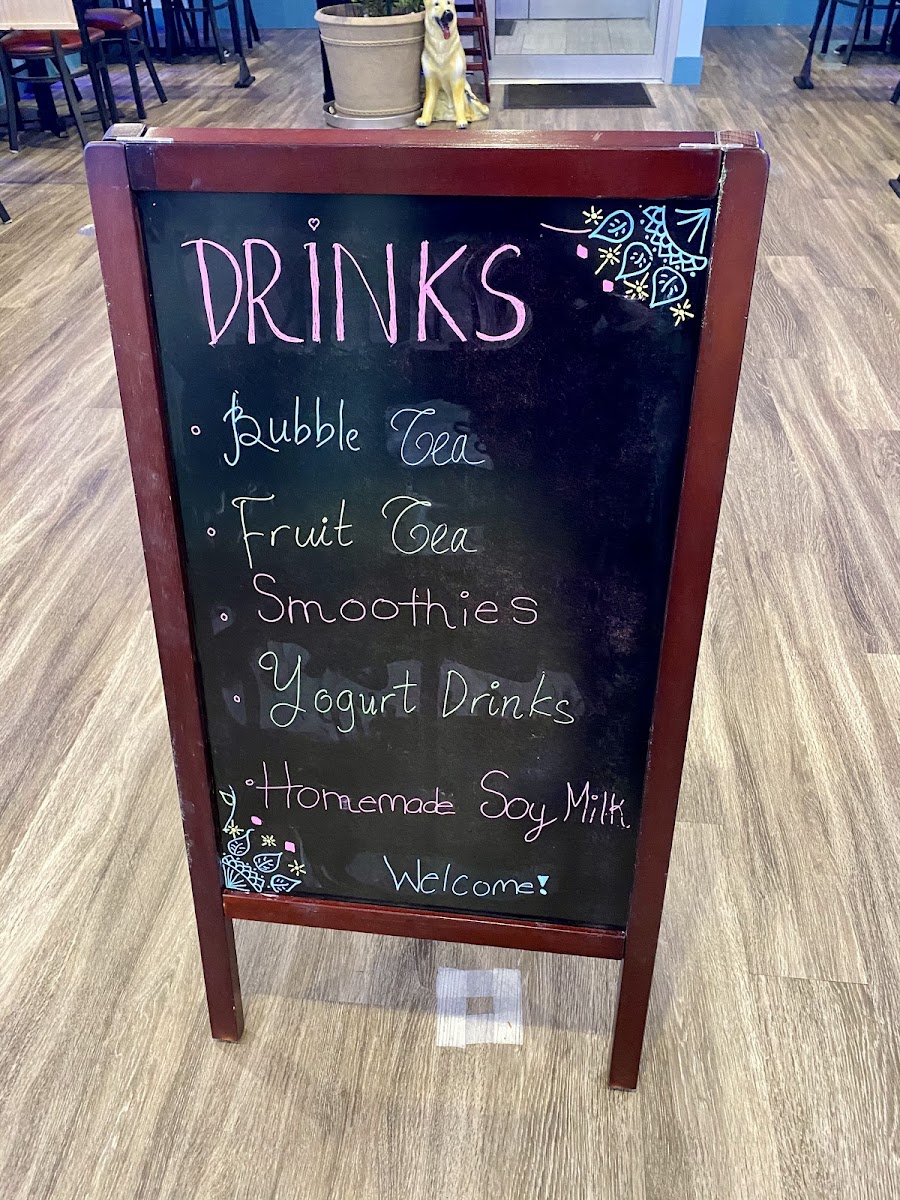 DRINKS
Bubble Tea
Fruit Tea
Smoothies
Yogurt Drinks
Homemade Soy Milk
Welcome!